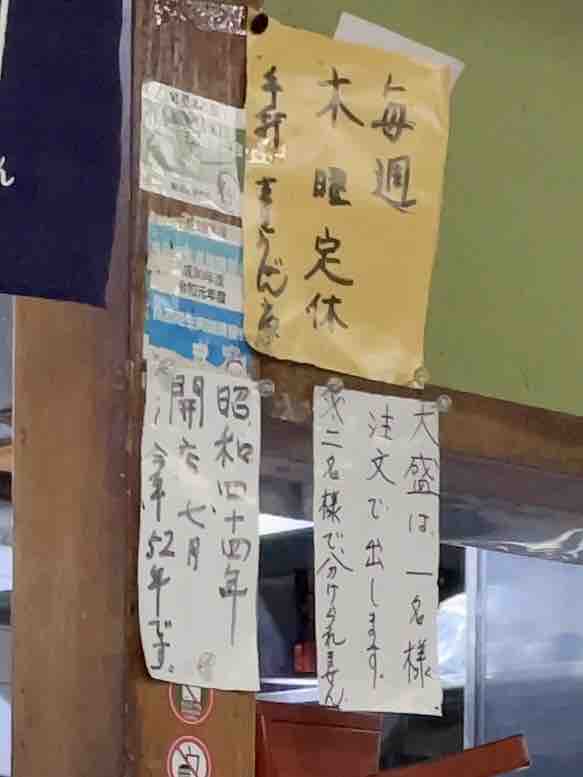 毎週
木曜定休
大盛は、一名様
注文で出します。
※二名様で分けられません
昭和四十四年
開店 七月
今年52年です。
平成30年度
令和元年度
ん